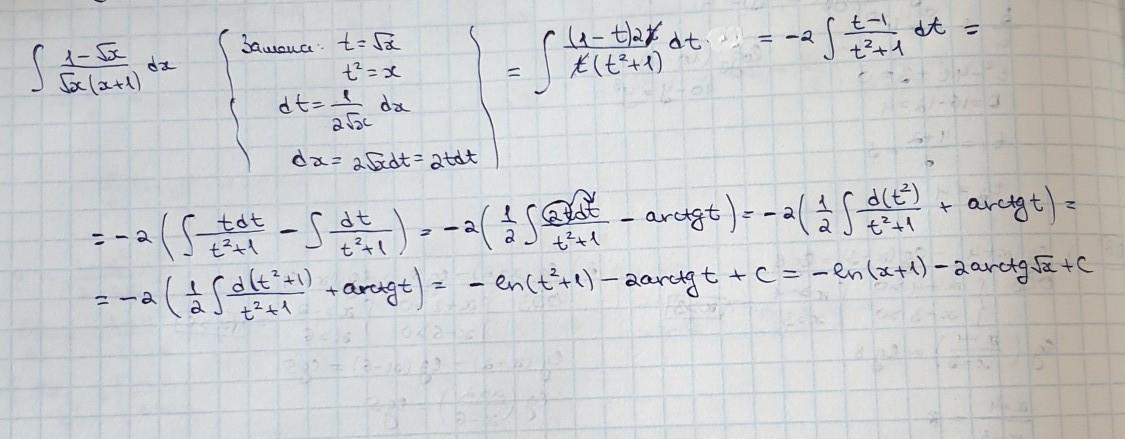 ∫ (1-√x)/(√x(x+1)) dx { Замена: t = √x t² = x dt = 1/(2√x) dx dx = 2√x dt = 2t dt } = ∫ (1-t)2t dt/(t(t²+1)) = -2 ∫ (t-1)/(t²+1) dt =
= -2 ( ∫ tdt/(t²+1) - ∫ dt/(t²+1) ) = -2 ( 1/2 ∫ 2tdt/(t²+1) - arctgt ) = -2 ( 1/2 ∫ d(t²)/(t²+1) + arctgt ) =
= -2 ( 1/2 ∫ d(t²+1)/(t²+1) + arctgt ) = - ln(t²+1) - 2arctg t + C = -ln(x+1) - 2arctg√x + C